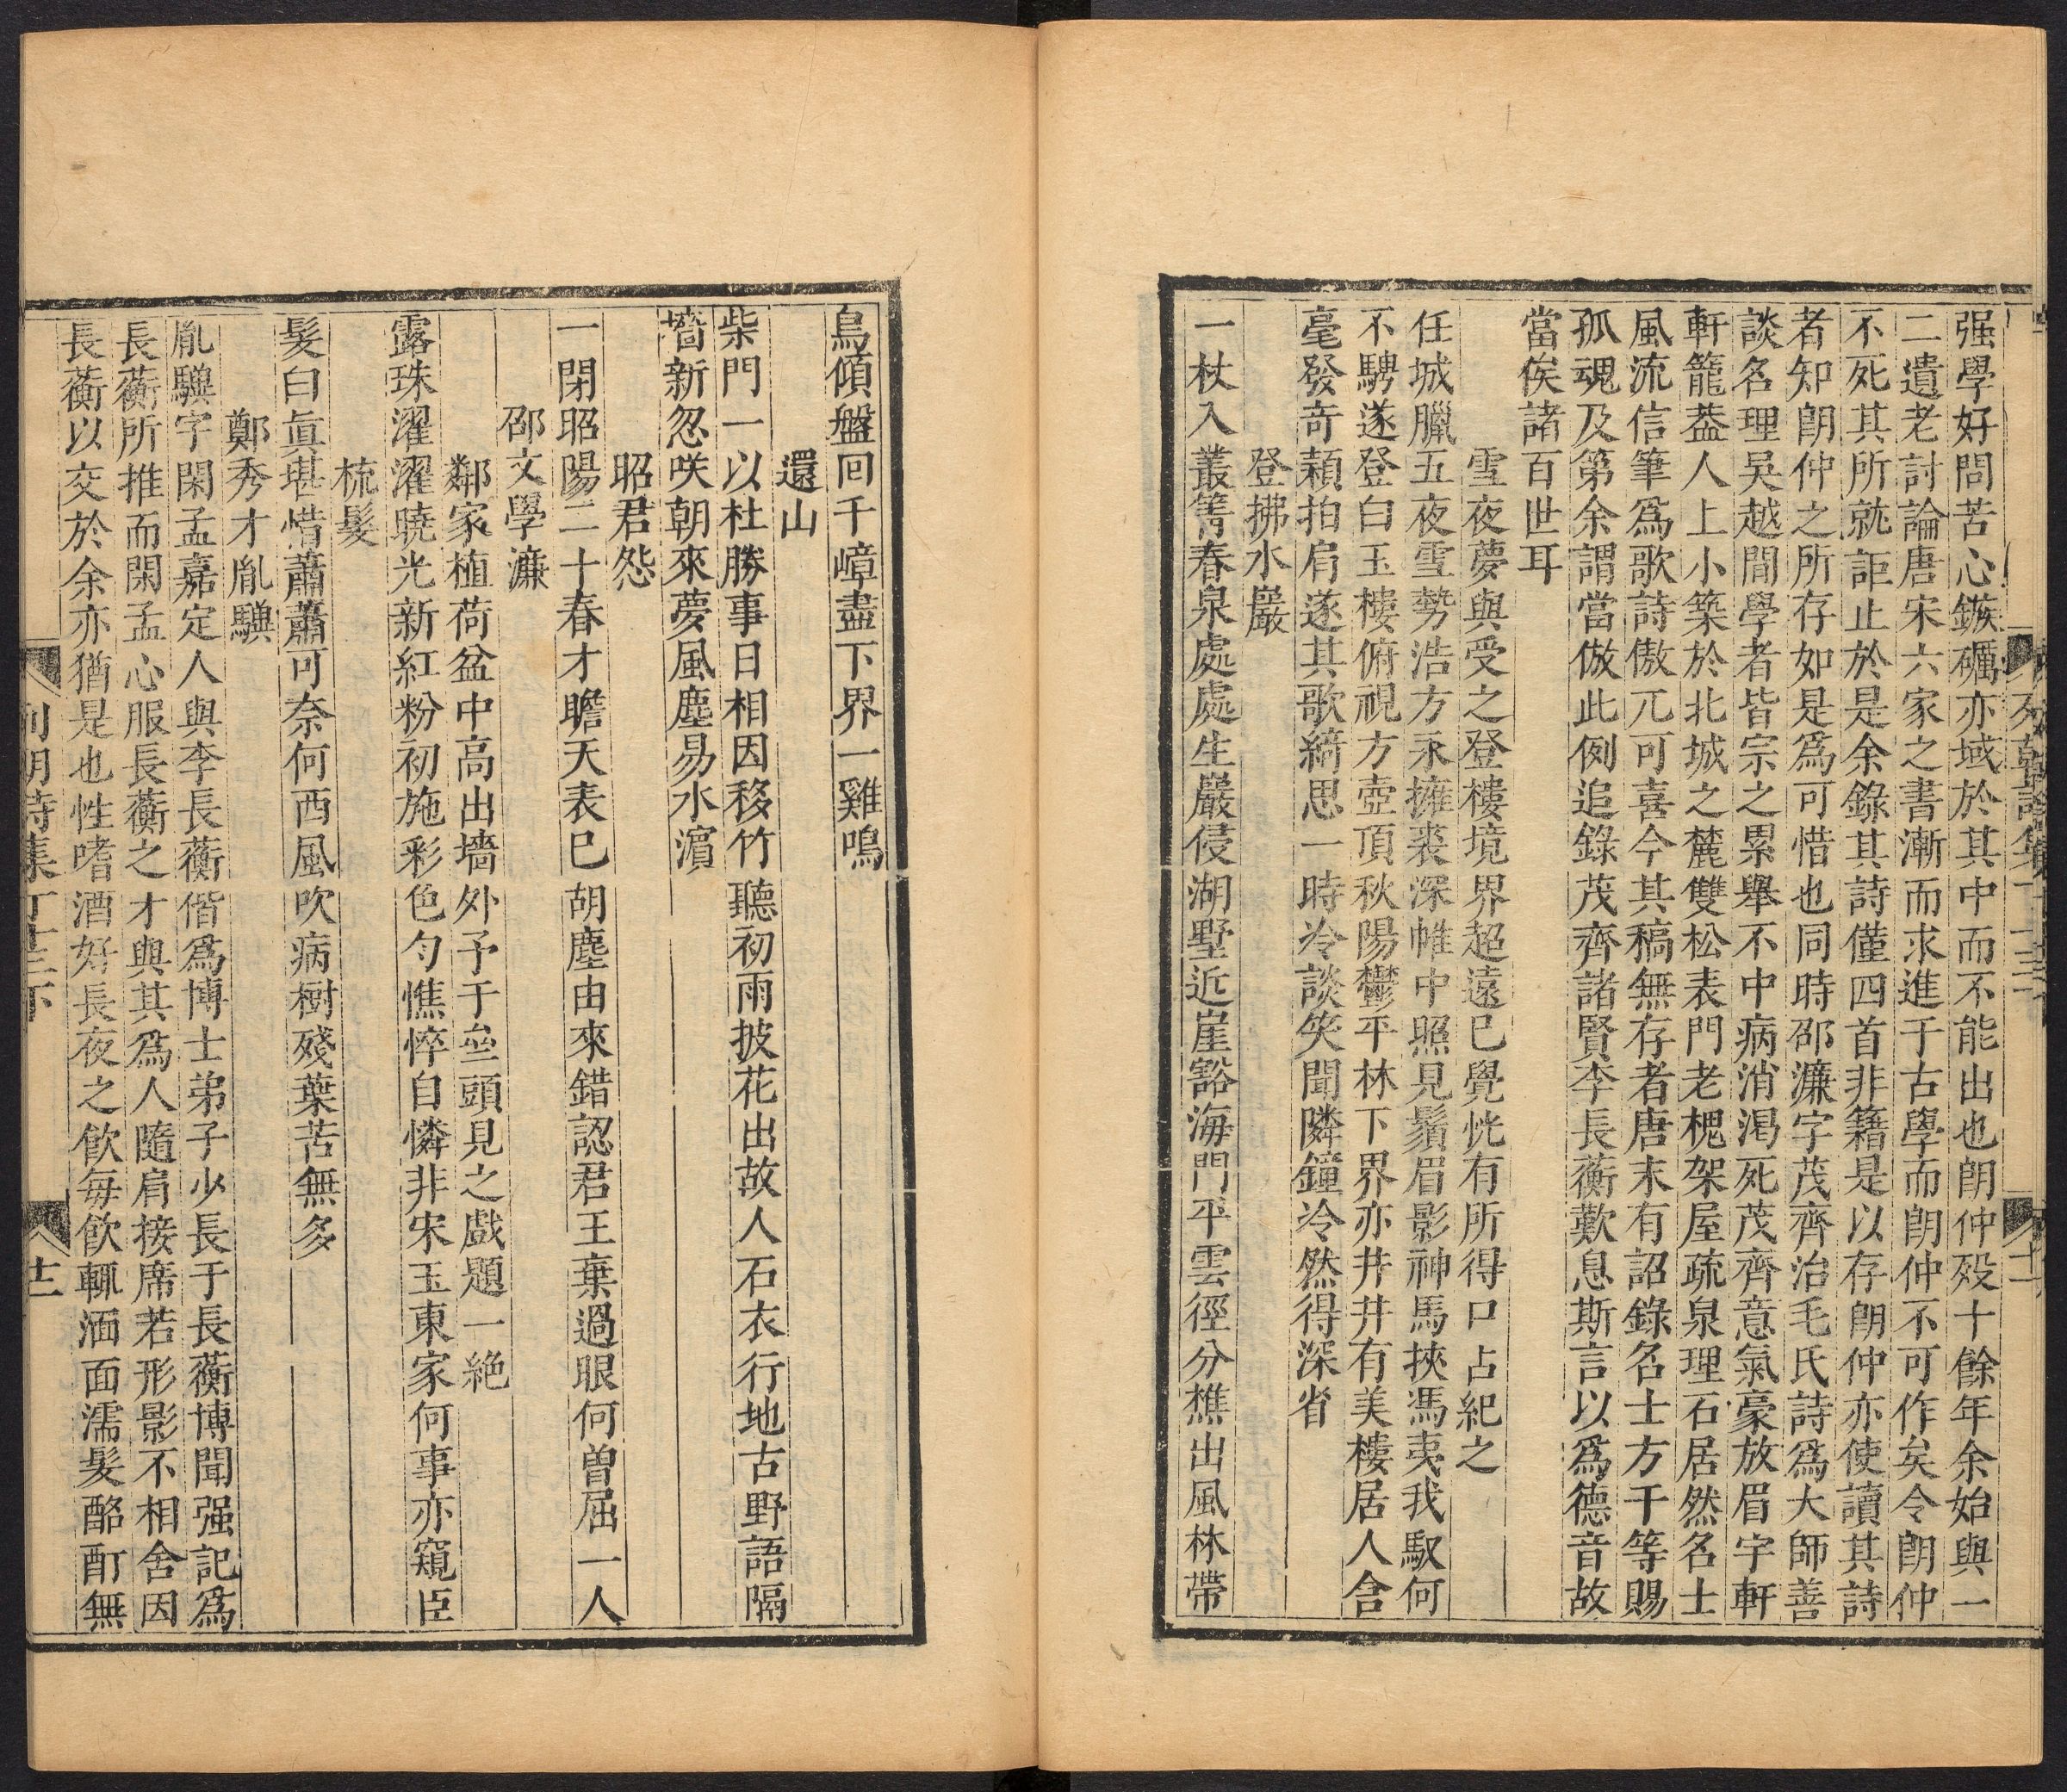 强學好問苦心鏃礪亦域於其中而不能出也朗仲歿十餘年余始與一
二遺老討論唐宋六家之書漸而求進于古學而朗仲不可作矣令朗仲
不死其所就詎止於是余錄其詩僅四首非籍是以存朗仲亦使讀其詩
者知朗仲之所存如是爲可惜也同時邵濂字茂齊治毛氏詩爲大師善
談名理吳越間學者皆宗之累舉不中病消渴死茂齊意氣豪放眉宇軒
軒籠葢人上小築於北城之麓雙松表門老槐架屋疏泉理石居然名士
風流信筆爲歌詩傲兀可喜今其稿無存者唐末有詔錄名士方干等賜
孤魂及第余謂當倣此例追錄茂齊諸賢李長蘅歎息斯言以爲德音故
當俟諸百世耳
雪夜夢與受之登樓境界超遠已覺恍有所得口占紀之
任城臘五夜雪勢浩方永擁裘深帷中照見鬚眉影神馬挾馮夷我馭何
不騁遂登白玉樓俯視方壺頂秋陽鬱平林下界亦井井有美樓居人含
毫發奇穎拍肩遂其歌綺思一時冷談笑聞隣鐘冷然得深省
登拂水巖
一杖入叢箐春泉處處生巖侵湖墅近崖豁海門平雲徑分樵出風林帶
鳥傾盤回千嶂盡下界一雞鳴
還山
柴門一以杜勝事日相因移竹聽初雨披花出故人石衣行地古野語隔
墻新忽咲朝來夢風塵易水濵
昭君怨
一閉昭陽二十春才瞻天表已胡塵由來錯認君王棄過眼何曾屈一人
邵文學濂
鄰家植荷盆中高出墻外予于垒頭見之戲題一絶
露珠濯濯曉光新紅粉初施彩色勻憔悴自憐非宋玉東家何事亦窺臣
梳髮
髮白眞堪惜蕭蕭可奈何西風吹病樹殘葉苦無多
鄭秀才胤驥
胤驥字閑孟嘉定人與李長蘅偕爲博士弟子少長于長蘅博聞强記爲
長蘅所推而閑孟心服長蘅之才與其爲人隨肩接席若形影不相舍因
長蘅以交於余亦猶是也性嗜酒好長夜之飲每飲輒湎面濡髮酩酊無
列朝詩集丁十三下
十二